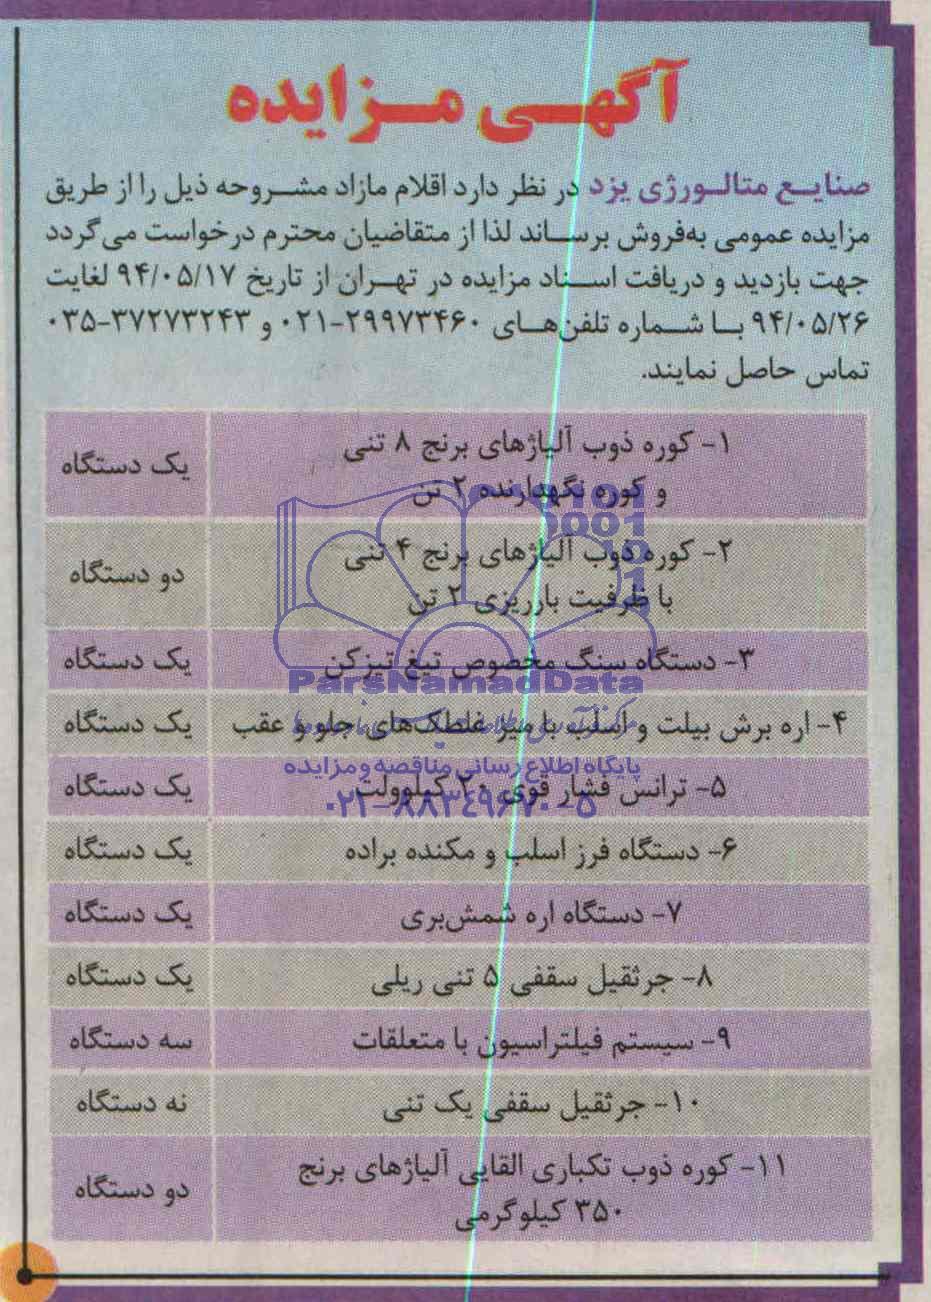 آگهی مزایده
صنایع متالورژی یزد در نظر دارد اقلام مازاد مشروحه ذیل را از طریق
مزایده عمومی به‌فروش برساند لذا از متقاضیان محترم درخواست می‌گردد
جهت بازدید و دریافت اسناد مزایده در تهران از تاریخ ۹۴/۰۵/۱۷ لغایت
۹۴/۰۵/۲۶ با شماره تلفن‌های ۰۲۱-۲۹۹۷۳۴۶۰ و ۰۳۵-۳۷۲۷۳۲۴۳
تماس حاصل نمایند.
۱- کوره ذوب آلیاژهای برنج ۸ تنی
و کوره نگهدارنده ۲ تن
یک دستگاه
۲- کوره ذوب آلیاژهای برنج ۴ تنی
با ظرفیت بارریزی ۲ تن
دو دستگاه
۳- دستگاه سنگ مخصوص تیغ تیزکن
یک دستگاه
۴- اره برش بیلت و اسلب با میز غلطک‌های جلو و عقب
یک دستگاه
۵- ترانس فشار قوی ۲۰ کیلوولت
یک دستگاه
۶- دستگاه فرز اسلب و مکنده براده
یک دستگاه
۷- دستگاه اره شمش‌بری
یک دستگاه
۸- جرثقیل سقفی ۵ تنی ریلی
یک دستگاه
۹- سیستم فیلتراسیون با متعلقات
سه دستگاه
۱۰- جرثقیل سقفی یک تنی
نه دستگاه
۱۱- کوره ذوب تکباری القایی آلیاژهای برنج
۳۵۰ کیلوگرمی
دو دستگاه
ParsNamadData
پایگاه اطلاع رسانی مناقصه و مزایده
۰۲۱-۸۸۳۴۹۶۷۰-۵